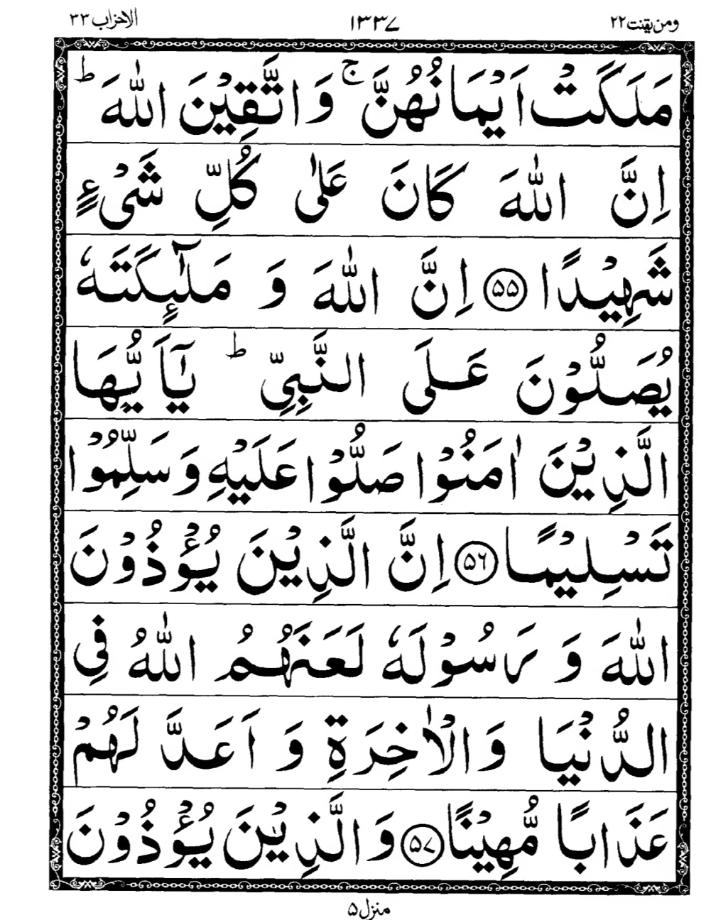 ومن یقنت ۲۲ ۱۳۳۷ الاحزاب ۳۳
مَلَكَتْ اَیْمَانُهُنَّ ۚ وَ اتَّقِیْنَ اللّٰهَ ؕ
اِنَّ اللّٰهَ كَانَ عَلٰی كُلِّ شَیْءٍ
شَهِیْدًا ﴿۵۵﴾ اِنَّ اللّٰهَ وَ مَلٰٓىِٕكَتَهٗ
یُصَلُّوْنَ عَلَی النَّبِیِّ ؕ یٰۤاَیُّهَا
الَّذِیْنَ اٰمَنُوْا صَلُّوْا عَلَیْهِ وَ سَلِّمُوْا
تَسْلِیْمًا ﴿۵۶﴾ اِنَّ الَّذِیْنَ یُؤْذُوْنَ
اللّٰهَ وَ رَسُوْلَهٗ لَعَنَهُمُ اللّٰهُ فِی
الدُّنْیَا وَ الْاٰخِرَةِ وَ اَعَدَّ لَهُمْ
عَذَابًا مُّهِیْنًا ﴿۵۷﴾ وَ الَّذِیْنَ یُؤْذُوْنَ
منزل ۵